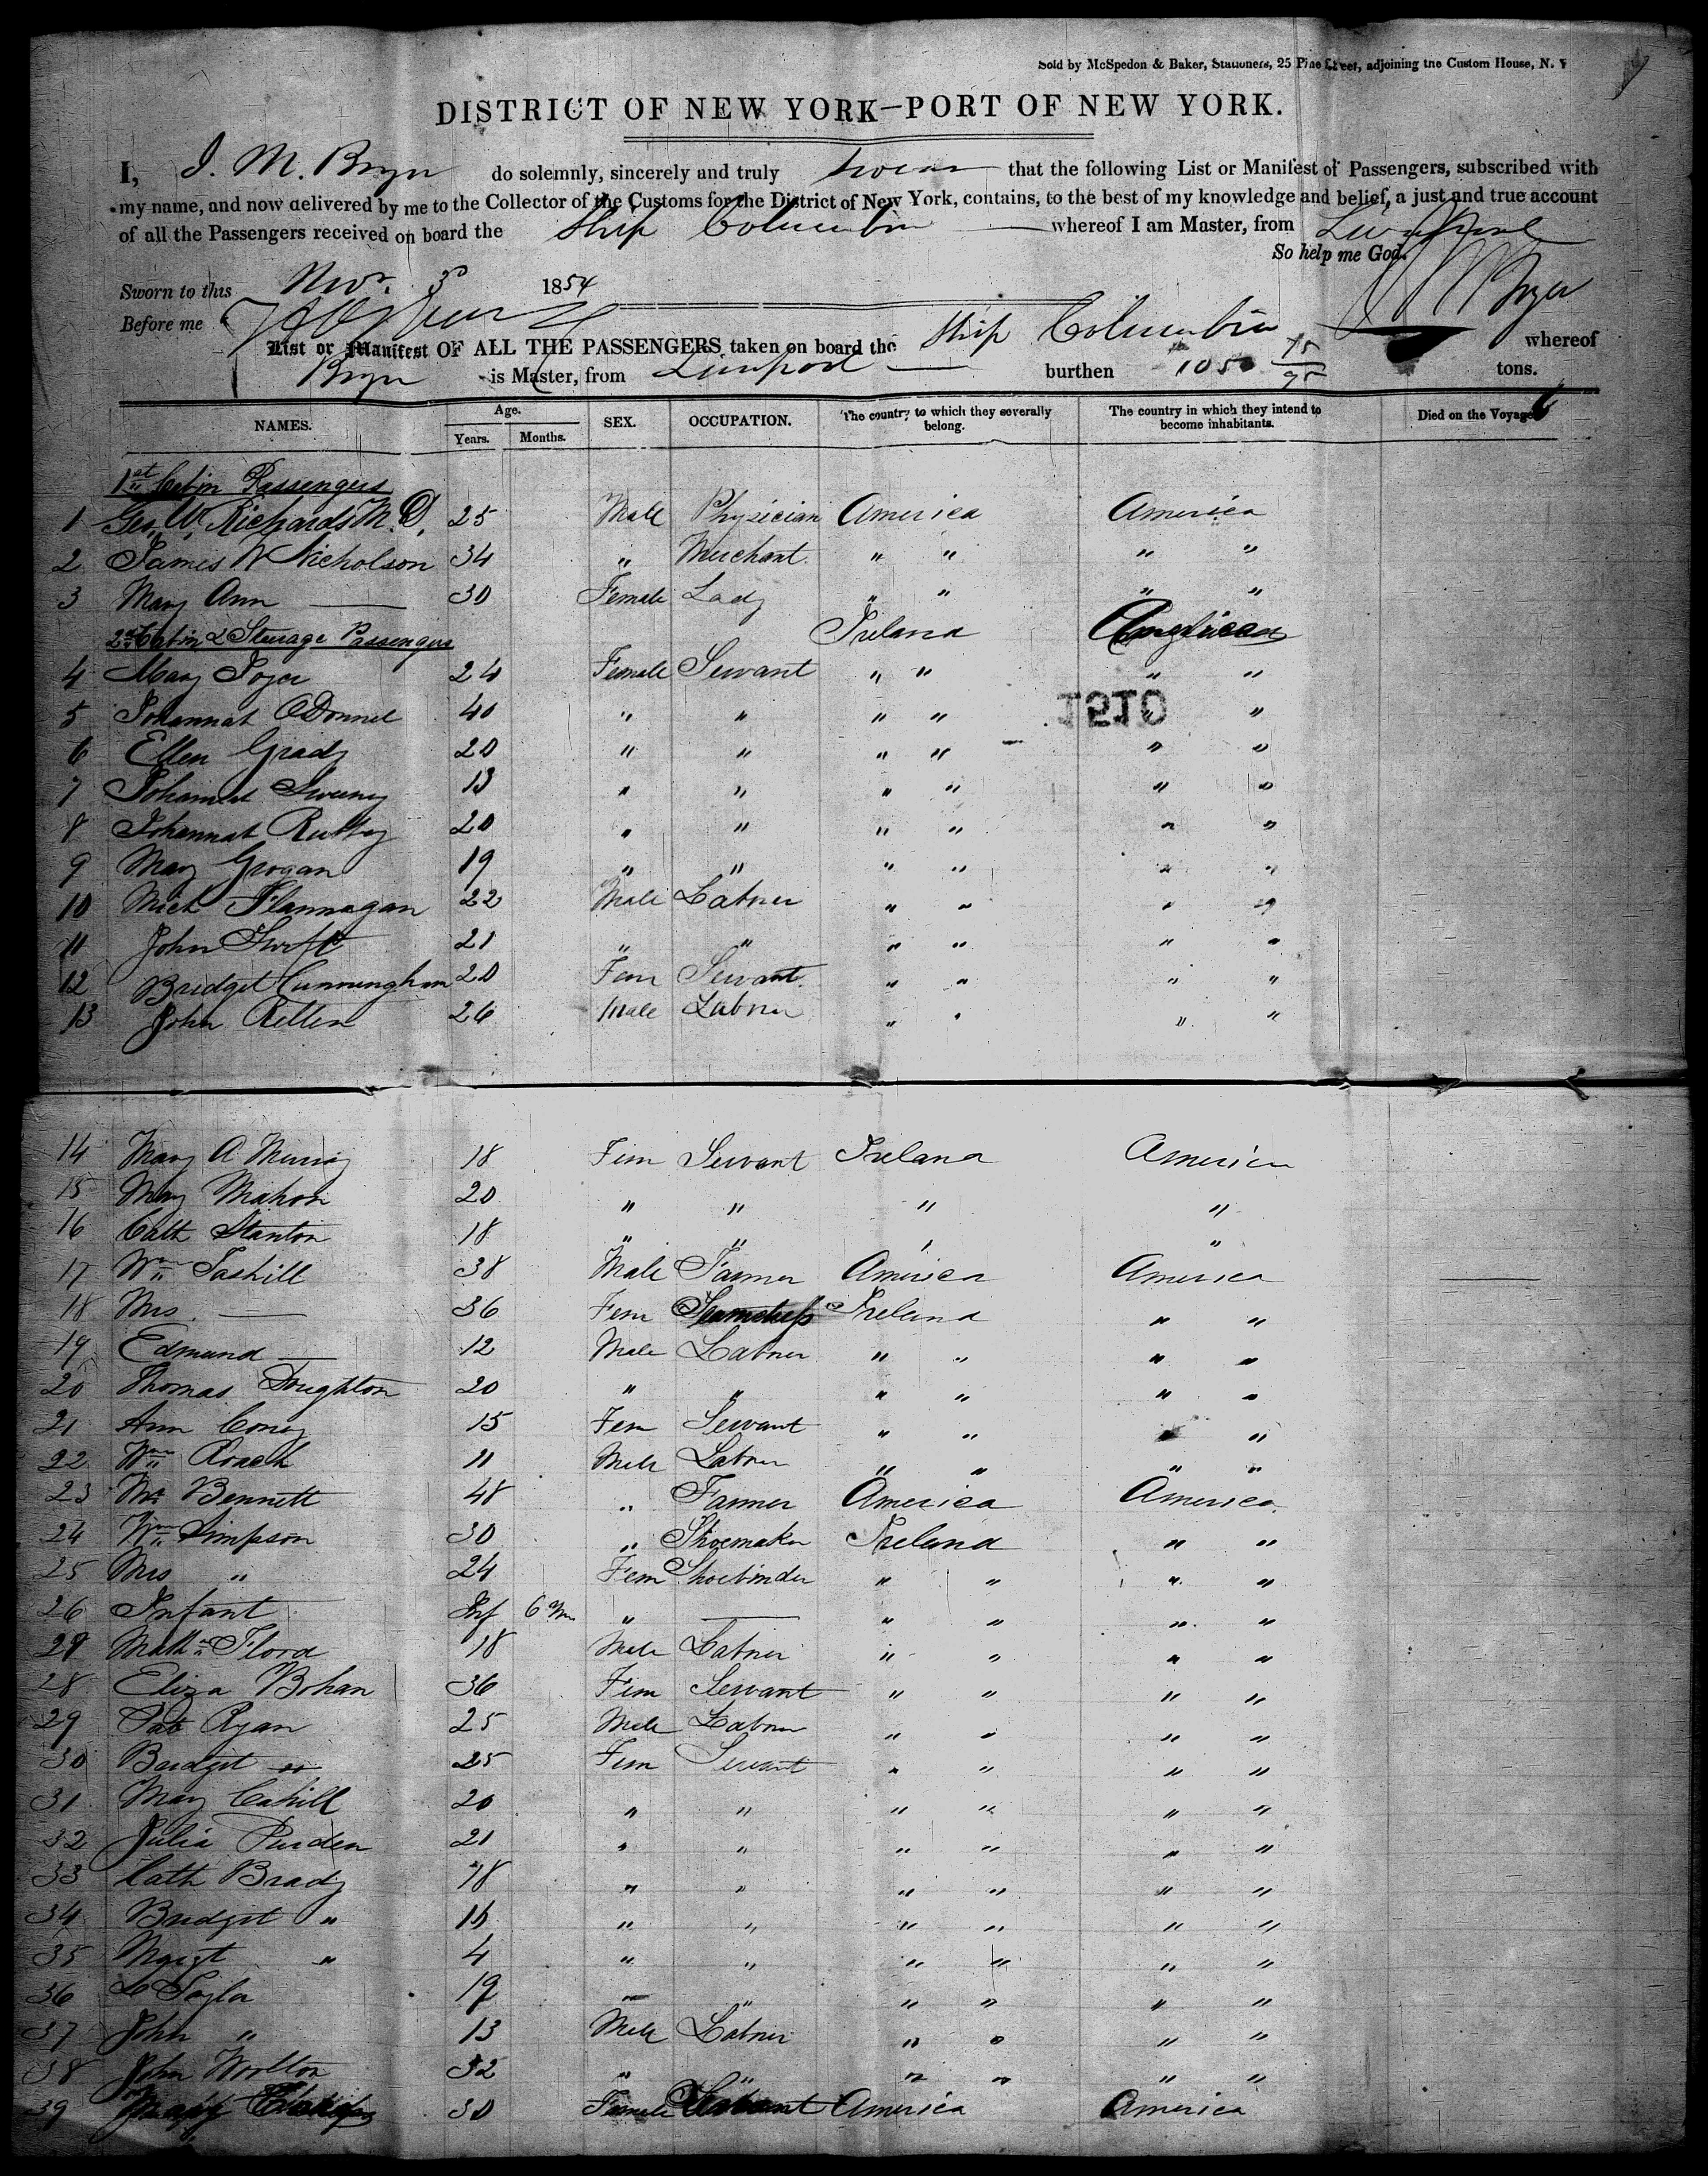 Sold by McSpedon & Baker, Stationers, 25 Pine Street, adjoining the Custom House, N. Y
DISTRICT OF NEW YORK—PORT OF NEW YORK.
I, J. M. Bryer do solemnly, sincerely and truly swear that the following List or Manifest of Passengers, subscribed with
my name, and now delivered by me to the Collector of the Customs for the District of New York, contains, to the best of my knowledge and belief, a just and true account
of all the Passengers received on board the Ship Columbia whereof I am Master, from Liverpool
So help me God.
Sworn to this Novr. 3d 1854
Before me
List or Manifest OF ALL THE PASSENGERS taken on board the Ship Columbia whereof
Bryer is Master, from Liverpool burthen 1050 75/95 tons.
NAMES. Age. Years. Months. SEX. OCCUPATION. The country to which they severally belong. The country in which they intend to become inhabitants. Died on the Voyage
1st Cabin Passengers
1 Geo. W. Richards M.D. 25 Male Physician America America
2 James W Nicholson 34 " Merchant " " " "
3 Mary Ann — 30 Female Lady " " " "
2nd Cabin & Steerage Passengers Ireland America
4 Mary 24 Female Servant " " " "
5 Johannah O'Donnel 40 " " " " " "
6 Ellen Grady 20 " " " " " "
7 Johannah Sweeny 13 " " " " " "
8 Johannah 20 " " " " " "
9 Mary Grogan 19 " " " " " "
10 Mich Flannagan 22 Male Labrer " " " "
11 John Swift 21 " " " " " "
12 Bridget Cunningham 20 Fem Servant " " " "
13 John 26 Male Labrer " " " "
14 Mary A Murray 18 Fem Servant Ireland America
15 Mary Mahon 20 " " " "
16 Cath Stanton 18 " " " "
17 Wm 38 Male Farmer America America
18 Mrs — 36 Fem Seamstress Ireland " "
19 Edmund — 12 Male Labrer " " " "
20 Thomas Doughton 20 " " " " " "
21 Ann 15 Fem Servant " " " "
22 Wm Roach 11 Male Labrer " " " "
23 Mr Bennett 48 " Farmer America America
24 Wm Simpson 30 " Shoemaker Ireland " "
25 Mrs " 24 Fem Shoebinder " " " "
26 Infant Inf 6 Mo " — " " " "
27 Flood 18 Male Labrer " " " "
28 Eliza Bohan 36 Fem Servant " " " "
29 Pat Ryan 25 Male Labrer " " " "
30 Bridget " 25 Fem Servant " " " "
31 Mary Cahill 20 " " " " " "
32 Julia Purden 21 " " " " " "
33 Cath Brady 18 " " " " " "
34 Bridget " " " " " " "
35 Margt " 4 " " " " " "
36 Taylor 19 " " " " " "
37 John " 13 Male Labrer " " " "
38 John Woolton 32 " " " " " "
39 30 Female Servant America America